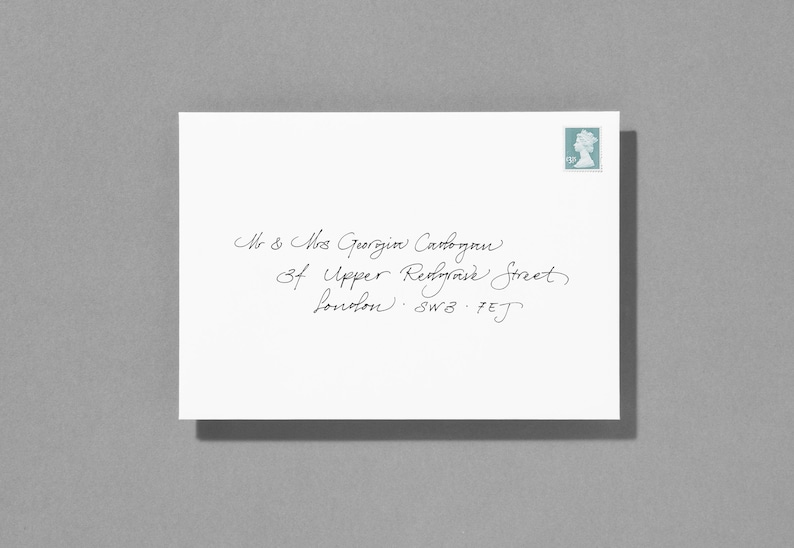 Mr & Mrs Georgia Cadogan
3f Upper Redgrave Street
London · SW3 · 7EJ